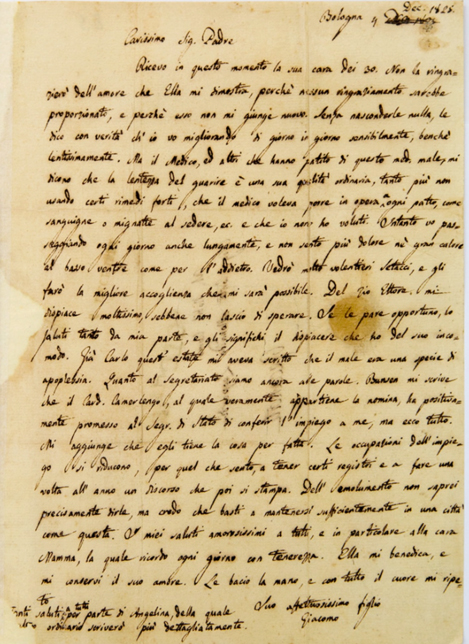 Dec. 1825.
Bologna 4
Carissimo Sig. Padre
Ricevo in questo momento la sua cara dei 30. Non la ringra-
zierò dell'amore che Ella mi dimostra, perchè nessun ringraziamento sarebbe
proporzionato, e perchè esso non mi giunge nuovo. Senza nasconderle nulla, le
dico con verità ch'io vo migliorando di giorno in giorno sensibilmente, benchè
lentissimamente. Ma il Medico, ed altri che hanno patito di questo mal, mi
dicono che la lentezza del guarire è una sua qualità ordinaria, tanto più non
usando certi rimedi forti, che il medico voleva porre in opera ogni patto, come
sanguigne o mignatte al sedere, ec. e che io non ho voluti. Intanto vo pas-
seggiando ogni giorno anche lungamente, e non sento più dolore nè gran calore
al basso ventre come per l'addietro. Vedrò molto volentieri Setacci, e gli
farò la migliore accoglienza che mi sarà possibile. Del Zio Ettore mi
dispiace moltissimo, sebbene non lascio di sperare. Se le pare opportuno, lo
saluti tanto da mia parte, e gli significhi il dispiacere che ho del suo inco-
modo. Già Carlo quest'estate mi aveva scritto che il male era una specie di
apoplessia. Quanto al Segretariato siamo ancora alle parole. Bunsen mi scrive
che il Card. Camerlengo, al quale veramente appartiene la nomina, ha positiva-
mente promesso al Segr. di Stato di conferir l'impiego a me, ma ecco tutto.
Mi aggiunge che egli tiene la cosa per fatta. Le occupazioni dell'impie-
go si riducono, per quel che sento, a tener certi registri e a fare una
volta all'anno un discorso che poi si stampa. Dell'emolumento non saprei
precisamente dirle, ma credo che basti a mantenersi sufficientemente in una città
come questa. I miei saluti amorosissimi a tutti, e in particolare alla cara
Mamma, la quale ricordo ogni giorno con tenerezza. Ella mi benedica, e
mi conservi il suo amore. Le bacio la mano, e con tutto il cuore mi ripe-
to
Suo affettuosissimo figlio
Giacomo
Tanti saluti a tutti per parte di Angelina, della quale
ordinario scriverò più dettagliatamente.